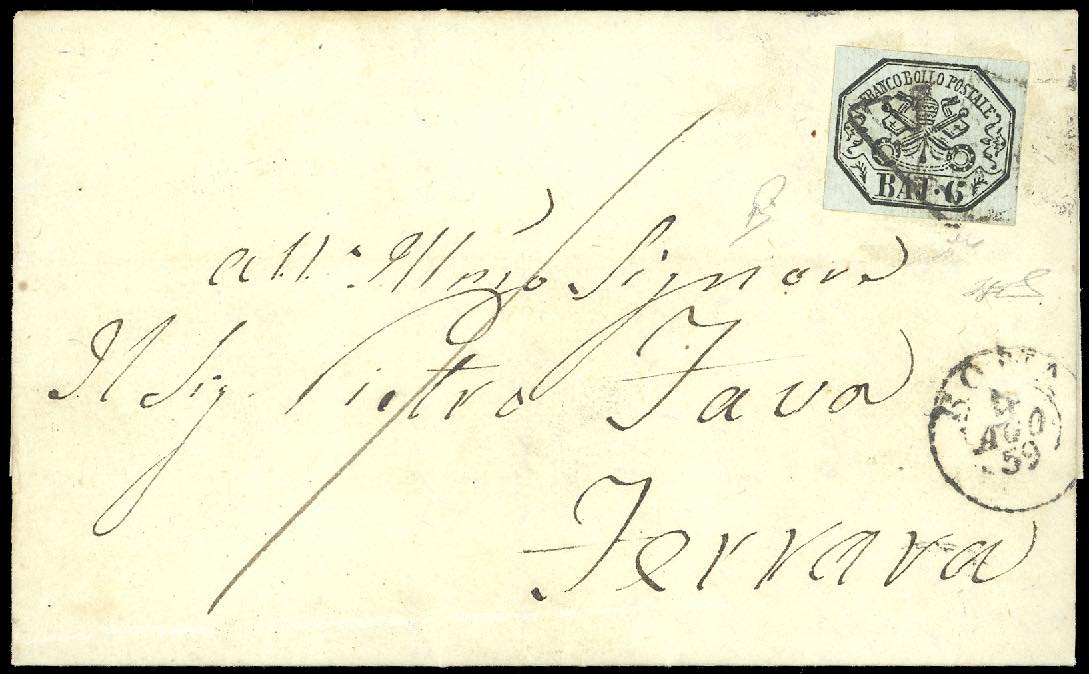 FRANCO BOLLO POSTALE
BAJ·6
All: Illmo Signore
Il Sig. Pietro Fava
Ferrara
ROMA
AGO
59